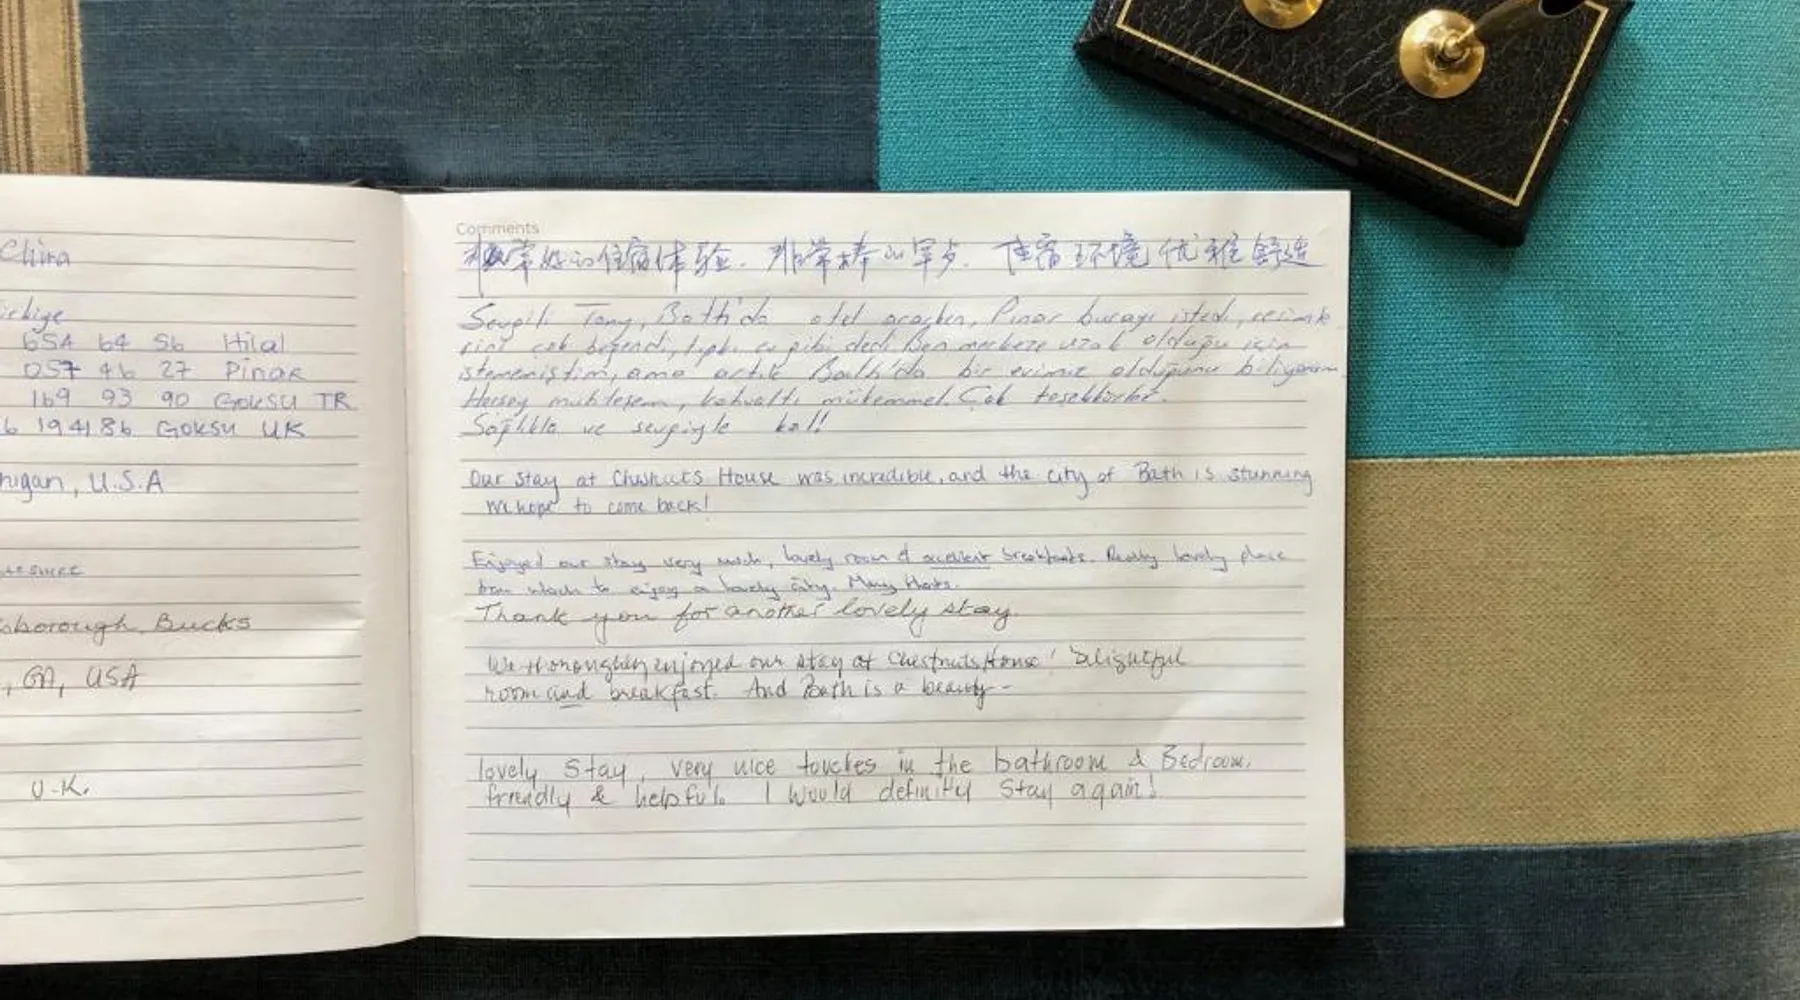 China
654 64 56 Hilal
057 46 27 Pinar
169 93 90 GOKSU TR
6 194186 GOKSU UK
higan, U.S.A
sborough, Bucks
, GA, USA
U.K.
Comments
非常好的住宿体验. 非常棒的早点. 住宿环境优雅舒适
Sevgili Tony, Bath'da otel ararken, Pınar burayı istedi, resimle
rini çok beğendi, tıpkı ev gibi dedi. Ben merkeze uzak olduğu için
istememiştim, ama artık Bath'da bir evimiz olduğunu biliyorum.
Herşey muhteşem, kahvaltı mükemmel. Çok teşekkürler.
Sağlıkla ve sevgiyle kal!
Our stay at Chestnuts House was incredible, and the city of Bath is stunning
We hope to come back!
Enjoyed our stay very much, lovely room & excellent breakfasts. Really lovely place
from which to enjoy a lovely city. Many thanks.
Thank you for another lovely stay.
We thoroughly enjoyed our stay at Chestnuts House! Delightful
room and breakfast. And Bath is a beauty-
lovely stay, very nice touches in the bathroom & Bedroom.
friendly & helpful. I would definitly stay again!